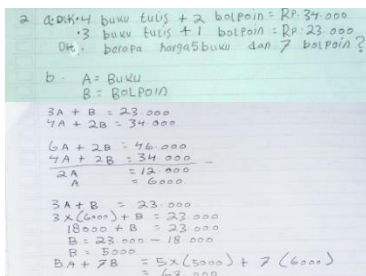 2 a. Dik. 4 buku tulis + 2 bolpoin = Rp. 34.000
. 3 buku tulis + 1 bolpoin = Rp. 23.000
Dit. berapa harga 5 buku dan 7 bolpoin?
b. A = Buku
B = BOLPOIN
3A + B = 23.000
4A + 2B = 34.000
6A + 2B = 46.000
4A + 2B = 34 000 -
2A = 12.000
A = 6000.
3A + B = 23.000
3 x (6000) + B = 23.000
18000 + B = 23.000
B = 23.000 - 18.000
B = 5000
5A + 7B = 5 x (5000) + 7 (6000)
= 67.000